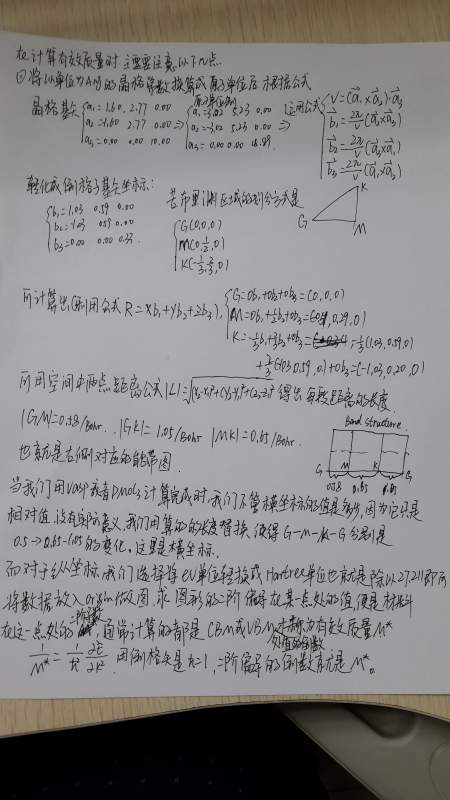 在计算有效质量时,主要要注意以下几点.
①将以单位为Ang的晶格常数换算成原子单位后,根据公式
晶格基矢 a₁=1.60 2.77 0.00 a₂=-1.60 2.77 0.00 a₃=0.00 0.00 10.00 ⇒ 原子单位制 a₁=3.02 5.23 0.00 a₂=-3.02 5.23 0.00 a₃=0.00 0.00 18.89 ⇒ 运用公式 V=(a₁×a₂)·a₃ b₁=2π/V(a₂×a₃) b₂=2π/V(a₃×a₁) b₃=2π/V(a₁×a₂)
转化成倒格子基矢坐标:
b₁=1.03 0.59 0.00 b₂=-1.03 0.59 0.00 b₃=0.00 0.00 0.33.
若布里渊区域的划分方式是 G(0,0,0) M(0,½,0) K(-⅓,⅔,0)
G K M
可计算出(利用公式 R=xb₁+yb₂+zb₃), G=0b₁+0b₂+0b₃=(0,0,0)
M=0b₁+½b₂+0b₃= 0.29,0)
K=-⅓b₁+⅔b₂+0b₃= -⅓(1.03,0.59,0)
+⅔(-1.03,0.59,0)+0b₃=(-1.03,0.20,0)
可用空间中两点距离公式|L|=√(x₂-x₁)²+(y₂-y₁)²+(z₂-z₁)² 得出每段距离的长度.
|GM|=0.58/Bohr. |GK|=1.05/Bohr |MK|=0.65/Bohr.
Band structure.
G M K G
0.58 0.65
也就是右侧对应的能带图.
当我们用vasp或者DMol3计算完成时,我们不管横坐标的值是多少,因为它只是
相对值,没有实际的意义,我们用算的的长度替换,使得G-M-K-G分别是
0.5→0.65-1.05的变化,这里是横坐标.
而对于纵坐标,我们选择将eV单位转换成Hartree单位也就是除以27.211即可
将数据放入origin做图,求图形的二阶偏导在某一点处的值,便是
在这一点处的二阶导数,通常计算的都是CBM或VBM 有效质量M*
处值的倒数
1/M*=1/ħ² ∂²E/∂k² 因 ħ=1,二阶偏导的倒数就是M*。